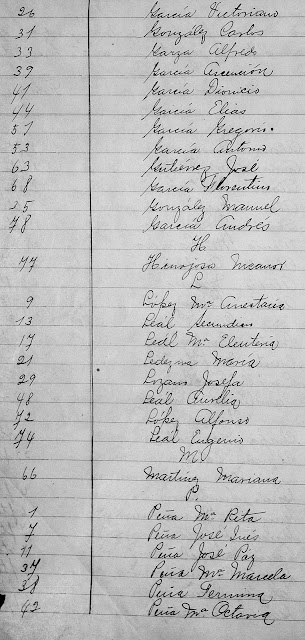 26 García Victoriano
31 González Carlos
33 Garza Alfredo
39 García Ascención
41 García Dionicio
44 García Elías
51 García Gregorio.
53 García Antonio
63 Gutiérrez José
68 García Florentino
25 González Manuel
78 García Andrés
H
77 Hinojosa Nicanor
L
9 López Mª Anastacia
13 Leál Secundino
17 Leál Mª Eleuteria
21 Ledezma María
29 Lozano Josefa
48 Leál Aurelia
72 López Alfonso
74 Leál Eugenio
M
66 Martínez Mariana
P.
1 Peña Mª Rita
7 Peña José Inés
11 Peña José Paz
37 Peña Mª Marcela
38 Peña Fermina
42 Peña Mª Octavia